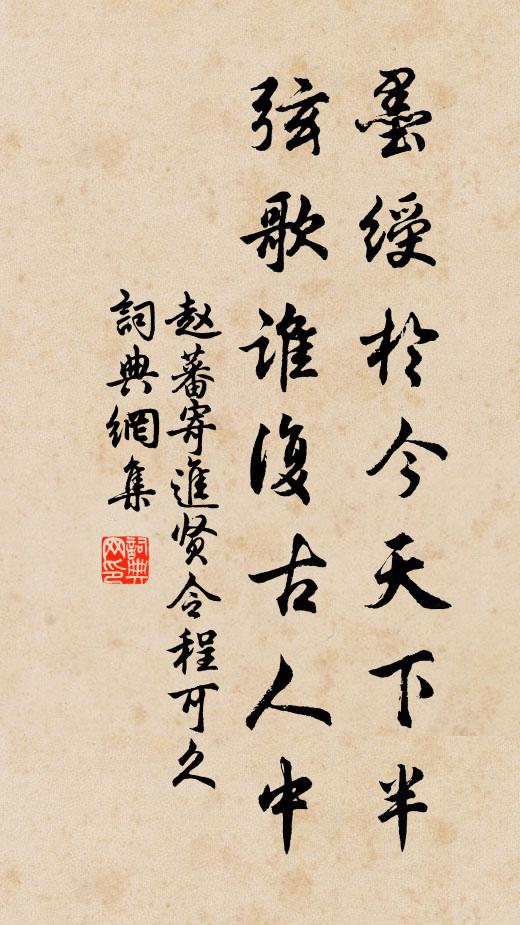 墨綬於今天下半
弦歌誰復古人中
赵蕃寄進贤令程可久
詞典網集
詞典网印